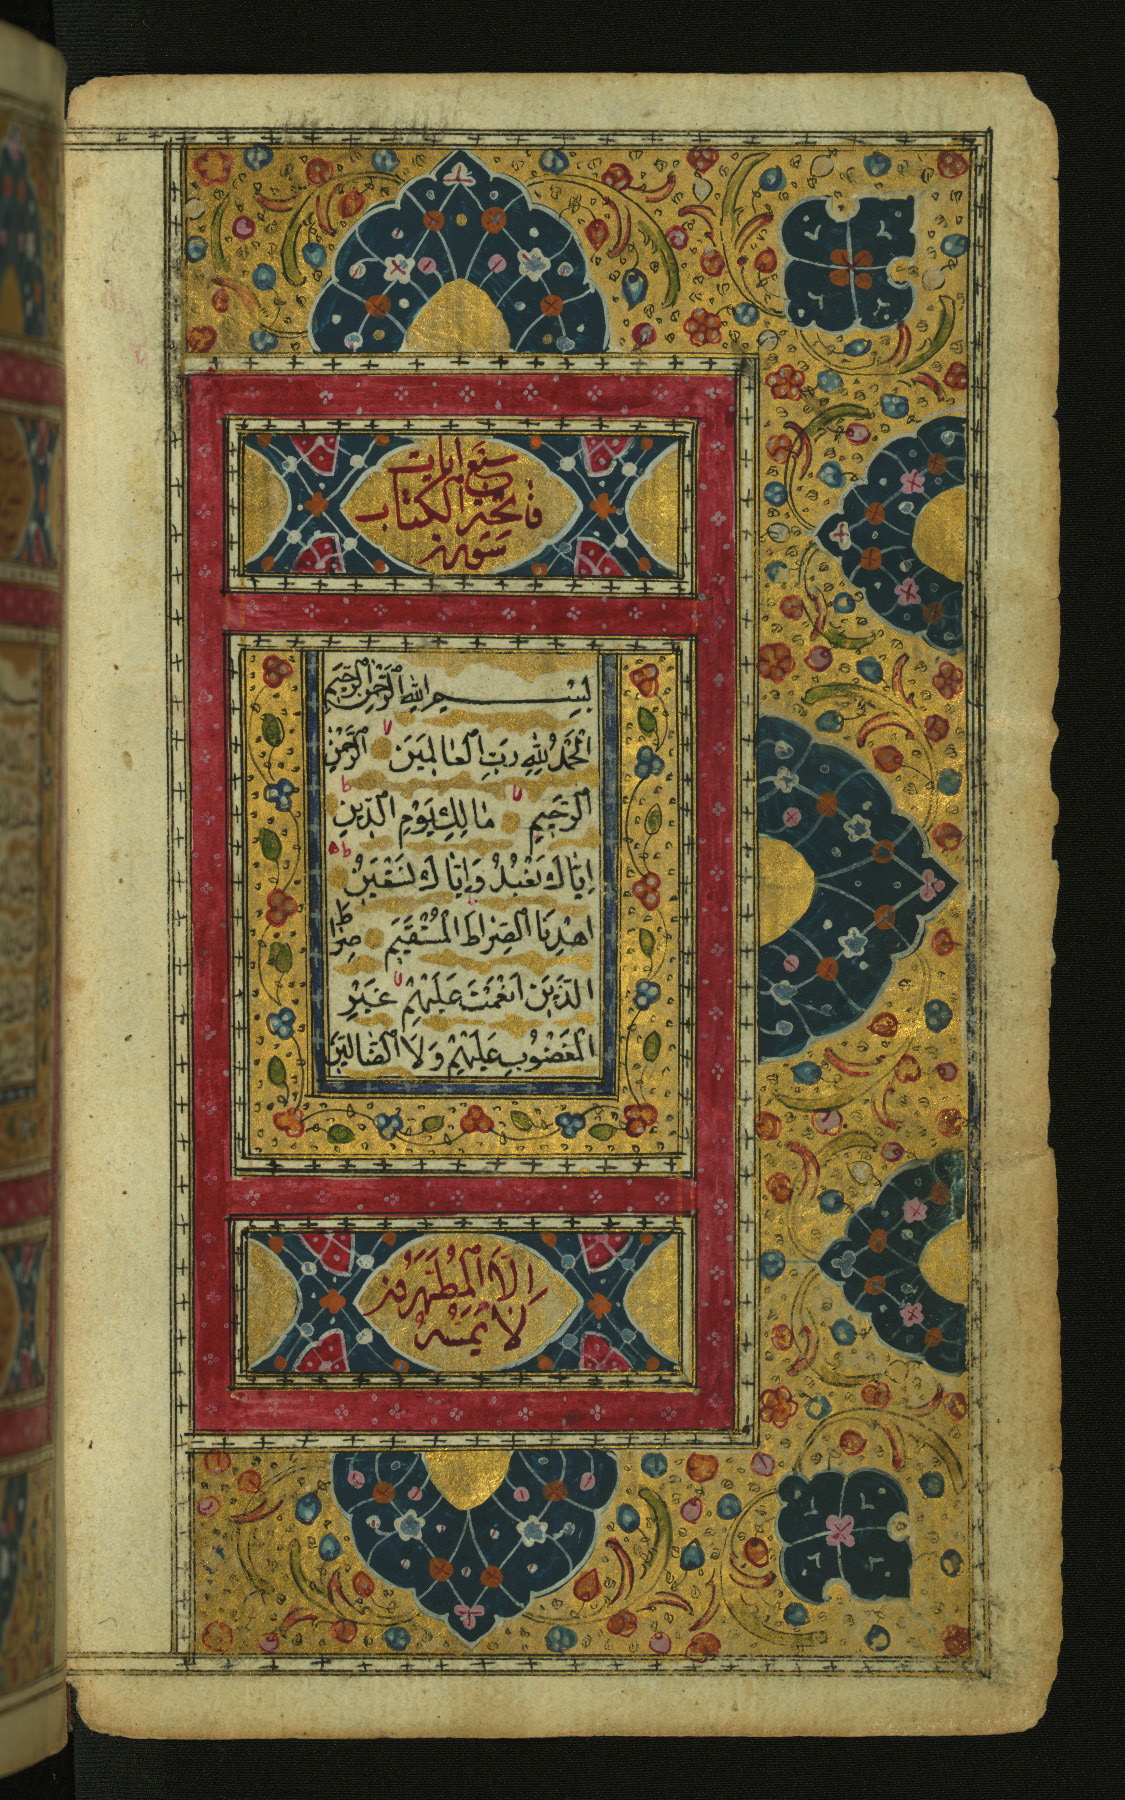 سبع ايات
فاتحة الكتاب
سورة
بِسْــــمِ اللهِ الرَّحْمٰنِ الرَّحِيمِ
اَلْحَمْدُ لِلّٰهِ رَبِّ الْعٰالَمِينَ لا الرَّحْمٰنِ
الرَّحِيمِ لا مٰالِكِ يَوْمِ الدِّينِ ط
اِيّٰاكَ نَعْبُدُ وَاِيّٰاكَ نَسْتَعِينُ ط
اِهْدِنَا الصِّرٰاطَ الْمُسْتَقِيمَ صِرٰاطَ
الَّذِينَ اَنْعَمْتَ عَلَيْهِمْ لا غَيْرِ
الْمَغْضُوبِ عَلَيْهِمْ وَلَا الضّٰالِّينَ
اِلَّا الْمُطَهَّرُونَ
لَا يَمَسُّهُ